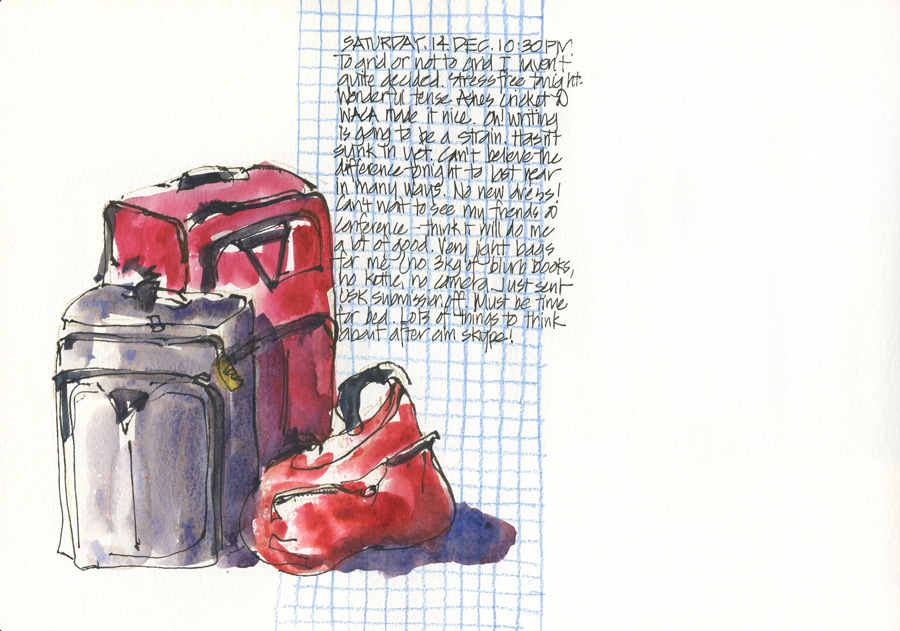 SATURDAY. 14 DEC. 10:30 PM.
To grid or not to grid I haven't
quite decided. Stress free tonight.
Wonderful tense Ashes cricket @
WACA made it nice. Oh! writing
is going to be a strain. Hasn't
sunk in yet. Can't believe the
difference tonight to last year
in many ways. No new dress!
Can't wait to see my friends @
conference - think it will do me
a lot of good. Very light bags
for me (no 3kg of blurb books,
no Katie, no camera. Just sent
USK submission off. Must be time
for bed. Lots of things to think
about after am skype!